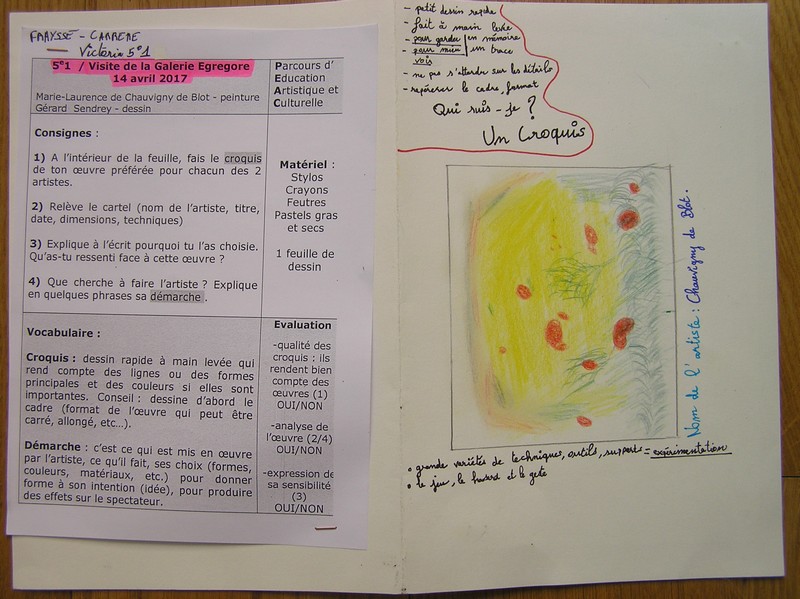 FRAYSSE - CARRERE
Victoria 5e1
5e1 / Visite de la Galerie Egregore
14 avril 2017
Marie-Laurence de Chauvigny de Blot - peinture
Gérard Sendrey - dessin
Parcours d'
Education
Artistique et
Culturelle
Consignes :
1) A l'intérieur de la feuille, fais le croquis
de ton œuvre préférée pour chacun des 2
artistes.
2) Relève le cartel (nom de l'artiste, titre,
date, dimensions, techniques)
3) Explique à l'écrit pourquoi tu l'as choisie.
Qu'as-tu ressenti face à cette œuvre ?
4) Que cherche à faire l'artiste ? Explique
en quelques phrases sa démarche .
Matériel :
Stylos
Crayons
Feutres
Pastels gras
et secs
1 feuille de
dessin
Vocabulaire :
Croquis : dessin rapide à main levée qui
rend compte des lignes ou des formes
principales et des couleurs si elles sont
importantes. Conseil : dessine d'abord le
cadre (format de l'œuvre qui peut être
carré, allongé, etc...).
Démarche : c'est ce qui est mis en œuvre
par l'artiste, ce qu'il fait, ses choix (formes,
couleurs, matériaux, etc.) pour donner
forme à son intention (idée), pour produire
des effets sur le spectateur.
Evaluation
-qualité des
croquis : ils
rendent bien
compte des
œuvres (1)
OUI/NON
-analyse de
l'œuvre (2/4)
OUI/NON
-expression de
sa sensibilité
(3)
OUI/NON
- petit dessin rapide
- fait à main levée
- pour garder en mémoire
- pour mieux voir un trace
- ne pas s'attarder sur les détails
- repérer le cadre, format
Qui suis-je ?
Un Croquis
Nom de l'artiste : Chauvigny de Blot.
• grande variétés de techniques, outils, supports = expérimentation
• le jeu, le hasard et le geste